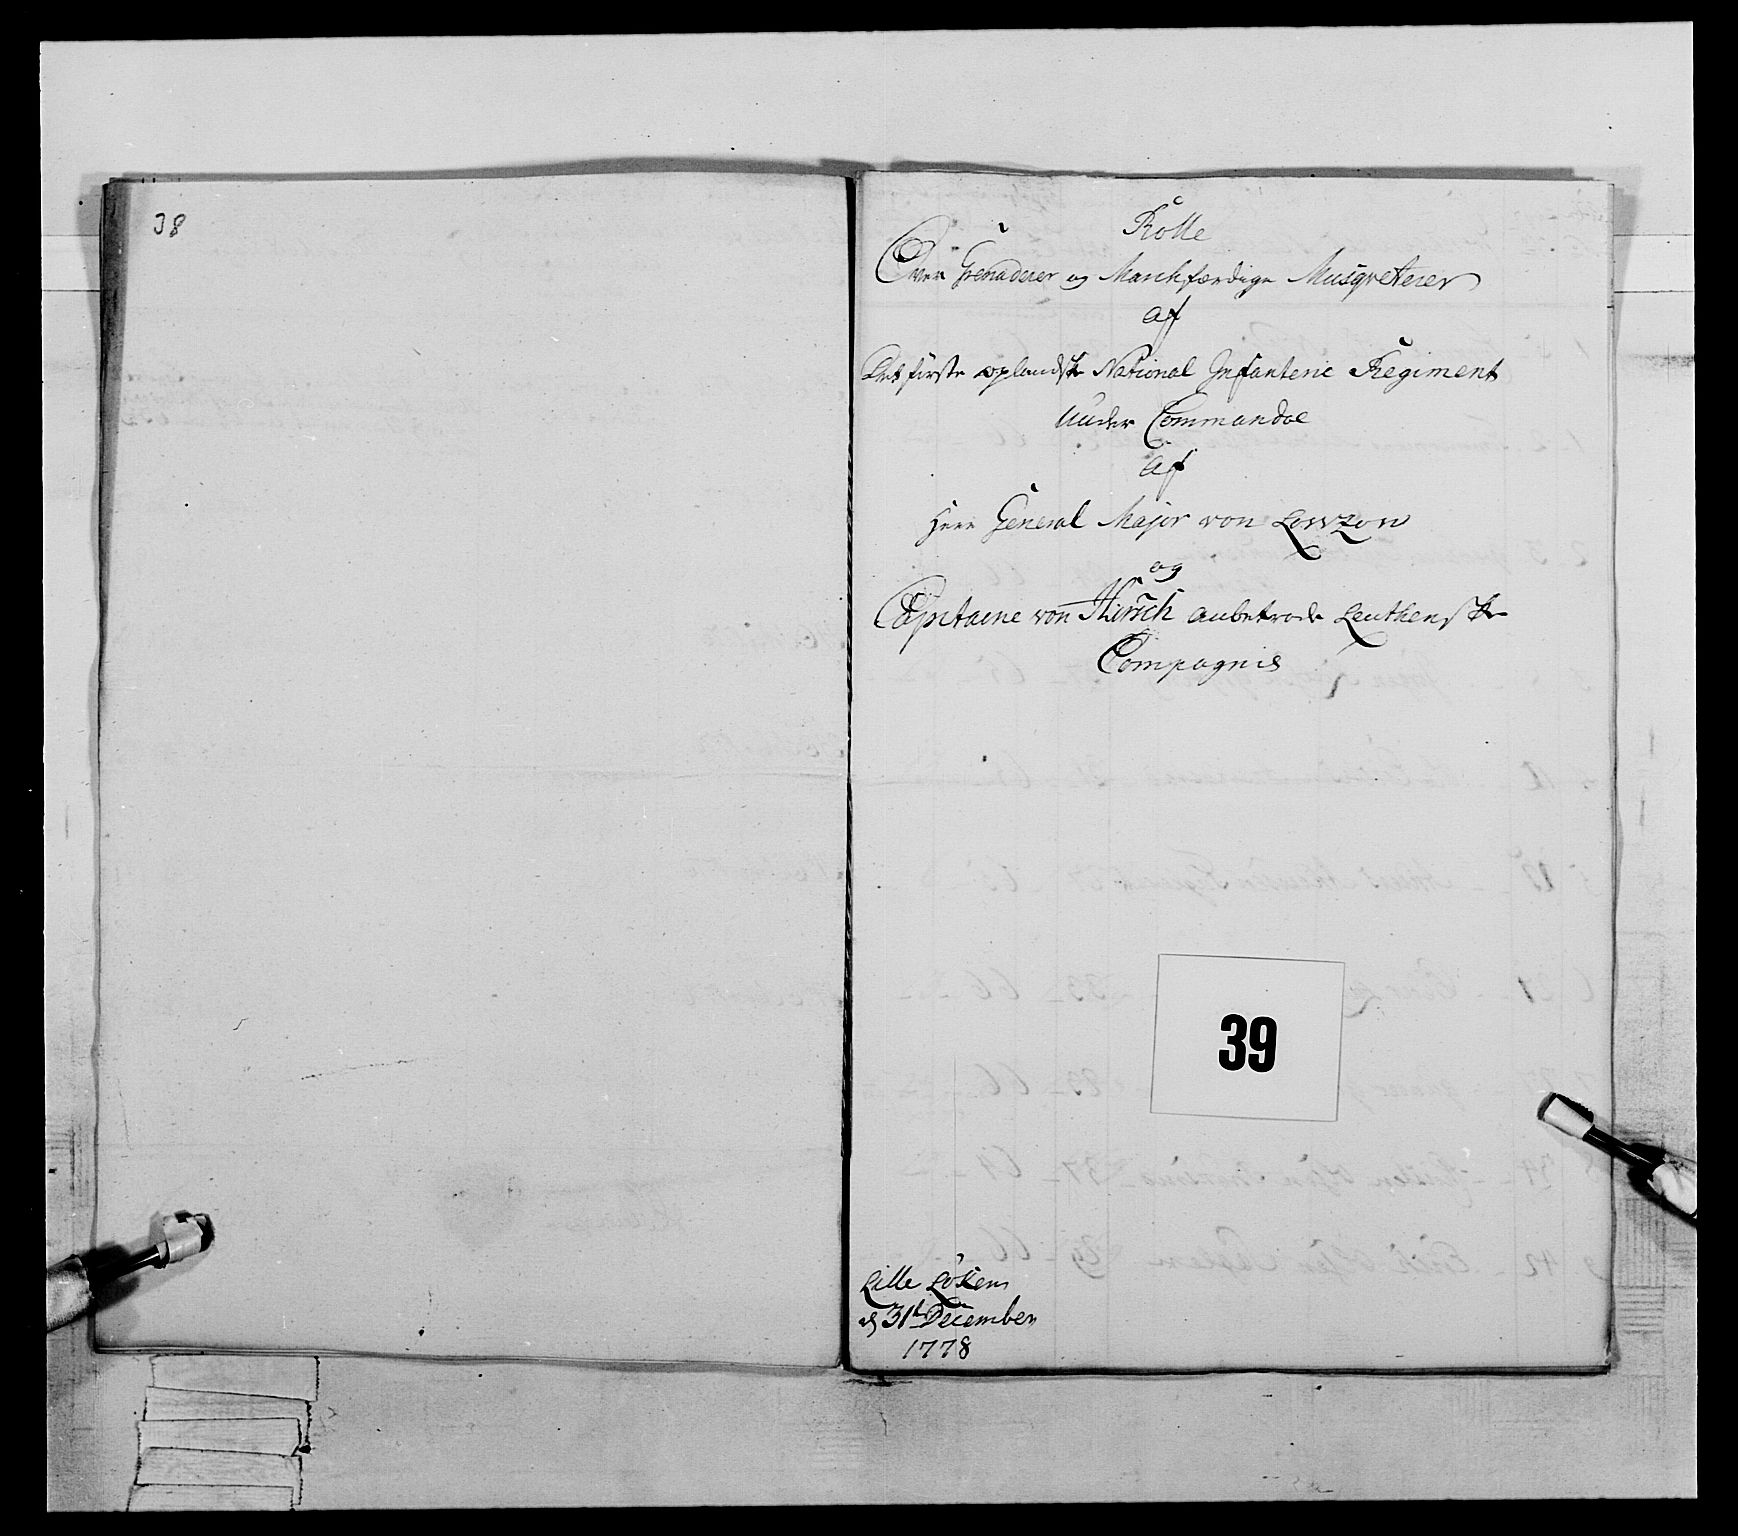 38
Rolle
Over Grenaderer og Marchfærdige Musqveterer
af
Det første oplandske National Infanterie Regiment
Under Commandoe
af
Herr General Major von Lowzow
og
Capitaine von Hirsch anbetroede Leuthenske
Compagnie
39
Lille Løken
d 31t December
1778